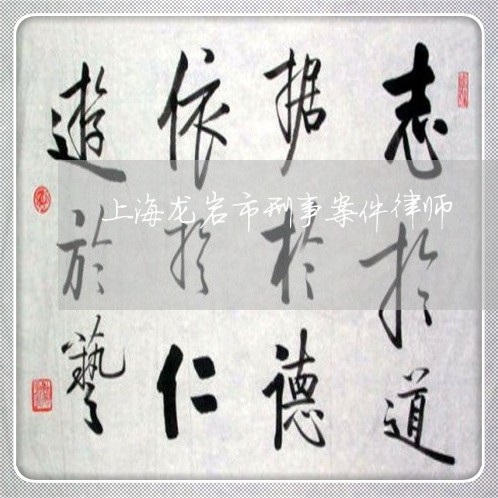 志扵道
据扵德
依扵仁
遊於藝
上海龙岩市刑事案件律师